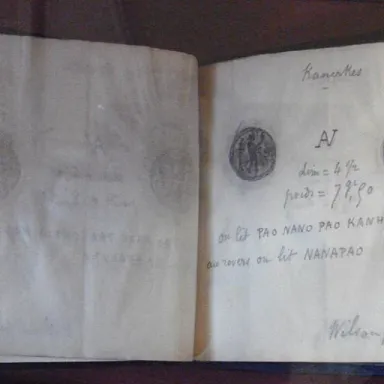 Kanerkes
AV
dim = 4 1/2
poids = 7gr,90
on lit PAO NANO PAO KANH
au revers on lit NANAPAO
Wilson,